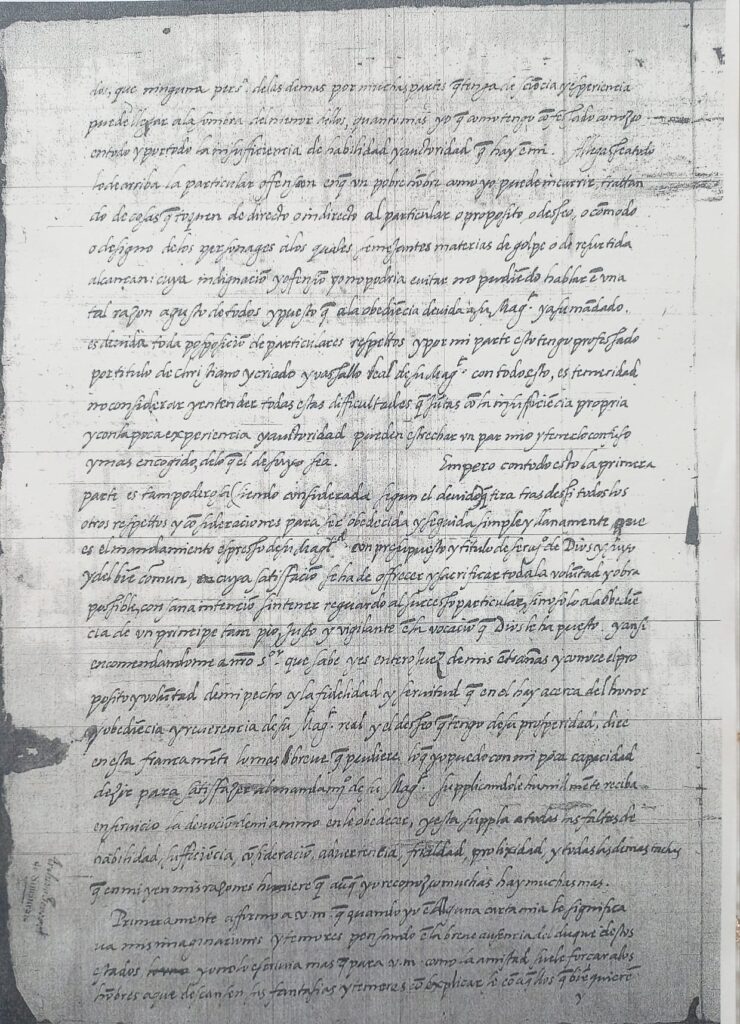 dos, que ninguna pers.ª delas demas por muchas partes q̃ tenga de sciẽcia y experiencia
puede llegar ala sombra del menor dellos, quanto mas yo q̃ como tengo cõfessado conozco
en todo y por todo la insufficiencia de habilidad y auctoridad q̃ hay en mi. Allegasse a todo
lo de arriba la particular offension en q̃ un pobre hõbre como yo puede incurrir, trattan
do de cosas q̃ toquen de directo o indirecto al particular o proposito, o desseo, o cõmodo
o designo delos personages alos quales semejantes materias de golpe o de resurtida
alcançan: cuya indignaciõ y offensiõ yo no podria evitar no pudiẽdo hablar ẽ una
tal razon a gusto de todos y puesto q̃ ala obediẽcia devida a su Mag.ᵗ y a su mãdado.
es devida toda posposiciõ de particulares respettos y por mi parte esto tengo professado
por titulo de christiano y criado y vassallo leal de su Mag.ᵗ con todo esto, es temeridad
no considerar y entender todas estas difficultades q̃ jũtas cõ la insufficiẽcia propria
y con la poca experiencia y auctoridad pueden estrechar un par mio y tenerlo confuso
y mas encogido, delo q̃ el de suyo sea. Empero con todo esto la primera
parte es tam poderosa (siendo considerada segun el devido) q̃ tira tras de si todos los
otros respettos y cõsideraciones para ser obedecida y seguida simple y llanamente que
es el mandamiento espresso de su Mag.ᵗ con presupuesto y titulo de servi.º de Dios y suyo
y del biẽ comun en cuya satisfaciõ se ha de offrecer y sacrificar toda la voluntad y obra
possible, con sana intenciõ sin tener reguardo al successo particular, sino solo ala obediẽ
cia de un principe tam pio, justo y vigilante ẽ la vocaciõ q̃ Dios le ha puesto. y ansi
encomendandome a nr̃o S.ᵒʳ que sabe y es entero juez de mis entrañas y conoce el pro
posito y voluntad de mi pecho y la fidelidad y servitud q̃ en el hay acerca del honor
y obediẽcia y reverencia de su Mag.ᵗ real y el desseo q̃ tengo de su prosperidad, dire
en esta francamẽte lo mas breve q̃ pudiere lo q̃ yo puedo con mi poca capacidad
dezir para satisfazer al mandam.º de su Mag.ᵗ supplicandole humilmẽte reciba
en servicio la devociõ de mi animo en le obedecer, y esta suppla a todas las faltas de
habilidad, sufficiẽcia, cõsideraciõ, advertencia, frialdad, prolixidad, y todas las demas tachas
q̃ en mi y en mis razones huviere q̃ aũq̃ yo reconozco muchas hay muchas mas.
Primeramente affirmo a v.m. q̃ quando yo ẽ alguna carta mia le significa
va mis imaginaciones y temores pensando ẽ la breve ausencia del duque destos
estados y no lo escrivia mas q̃ para v.m. como la amistad suele forcar alos
hõbres a que descansen sus fantasias y temores cõ explicarsele cõ aq̃llos q̃ biẽ quierẽ